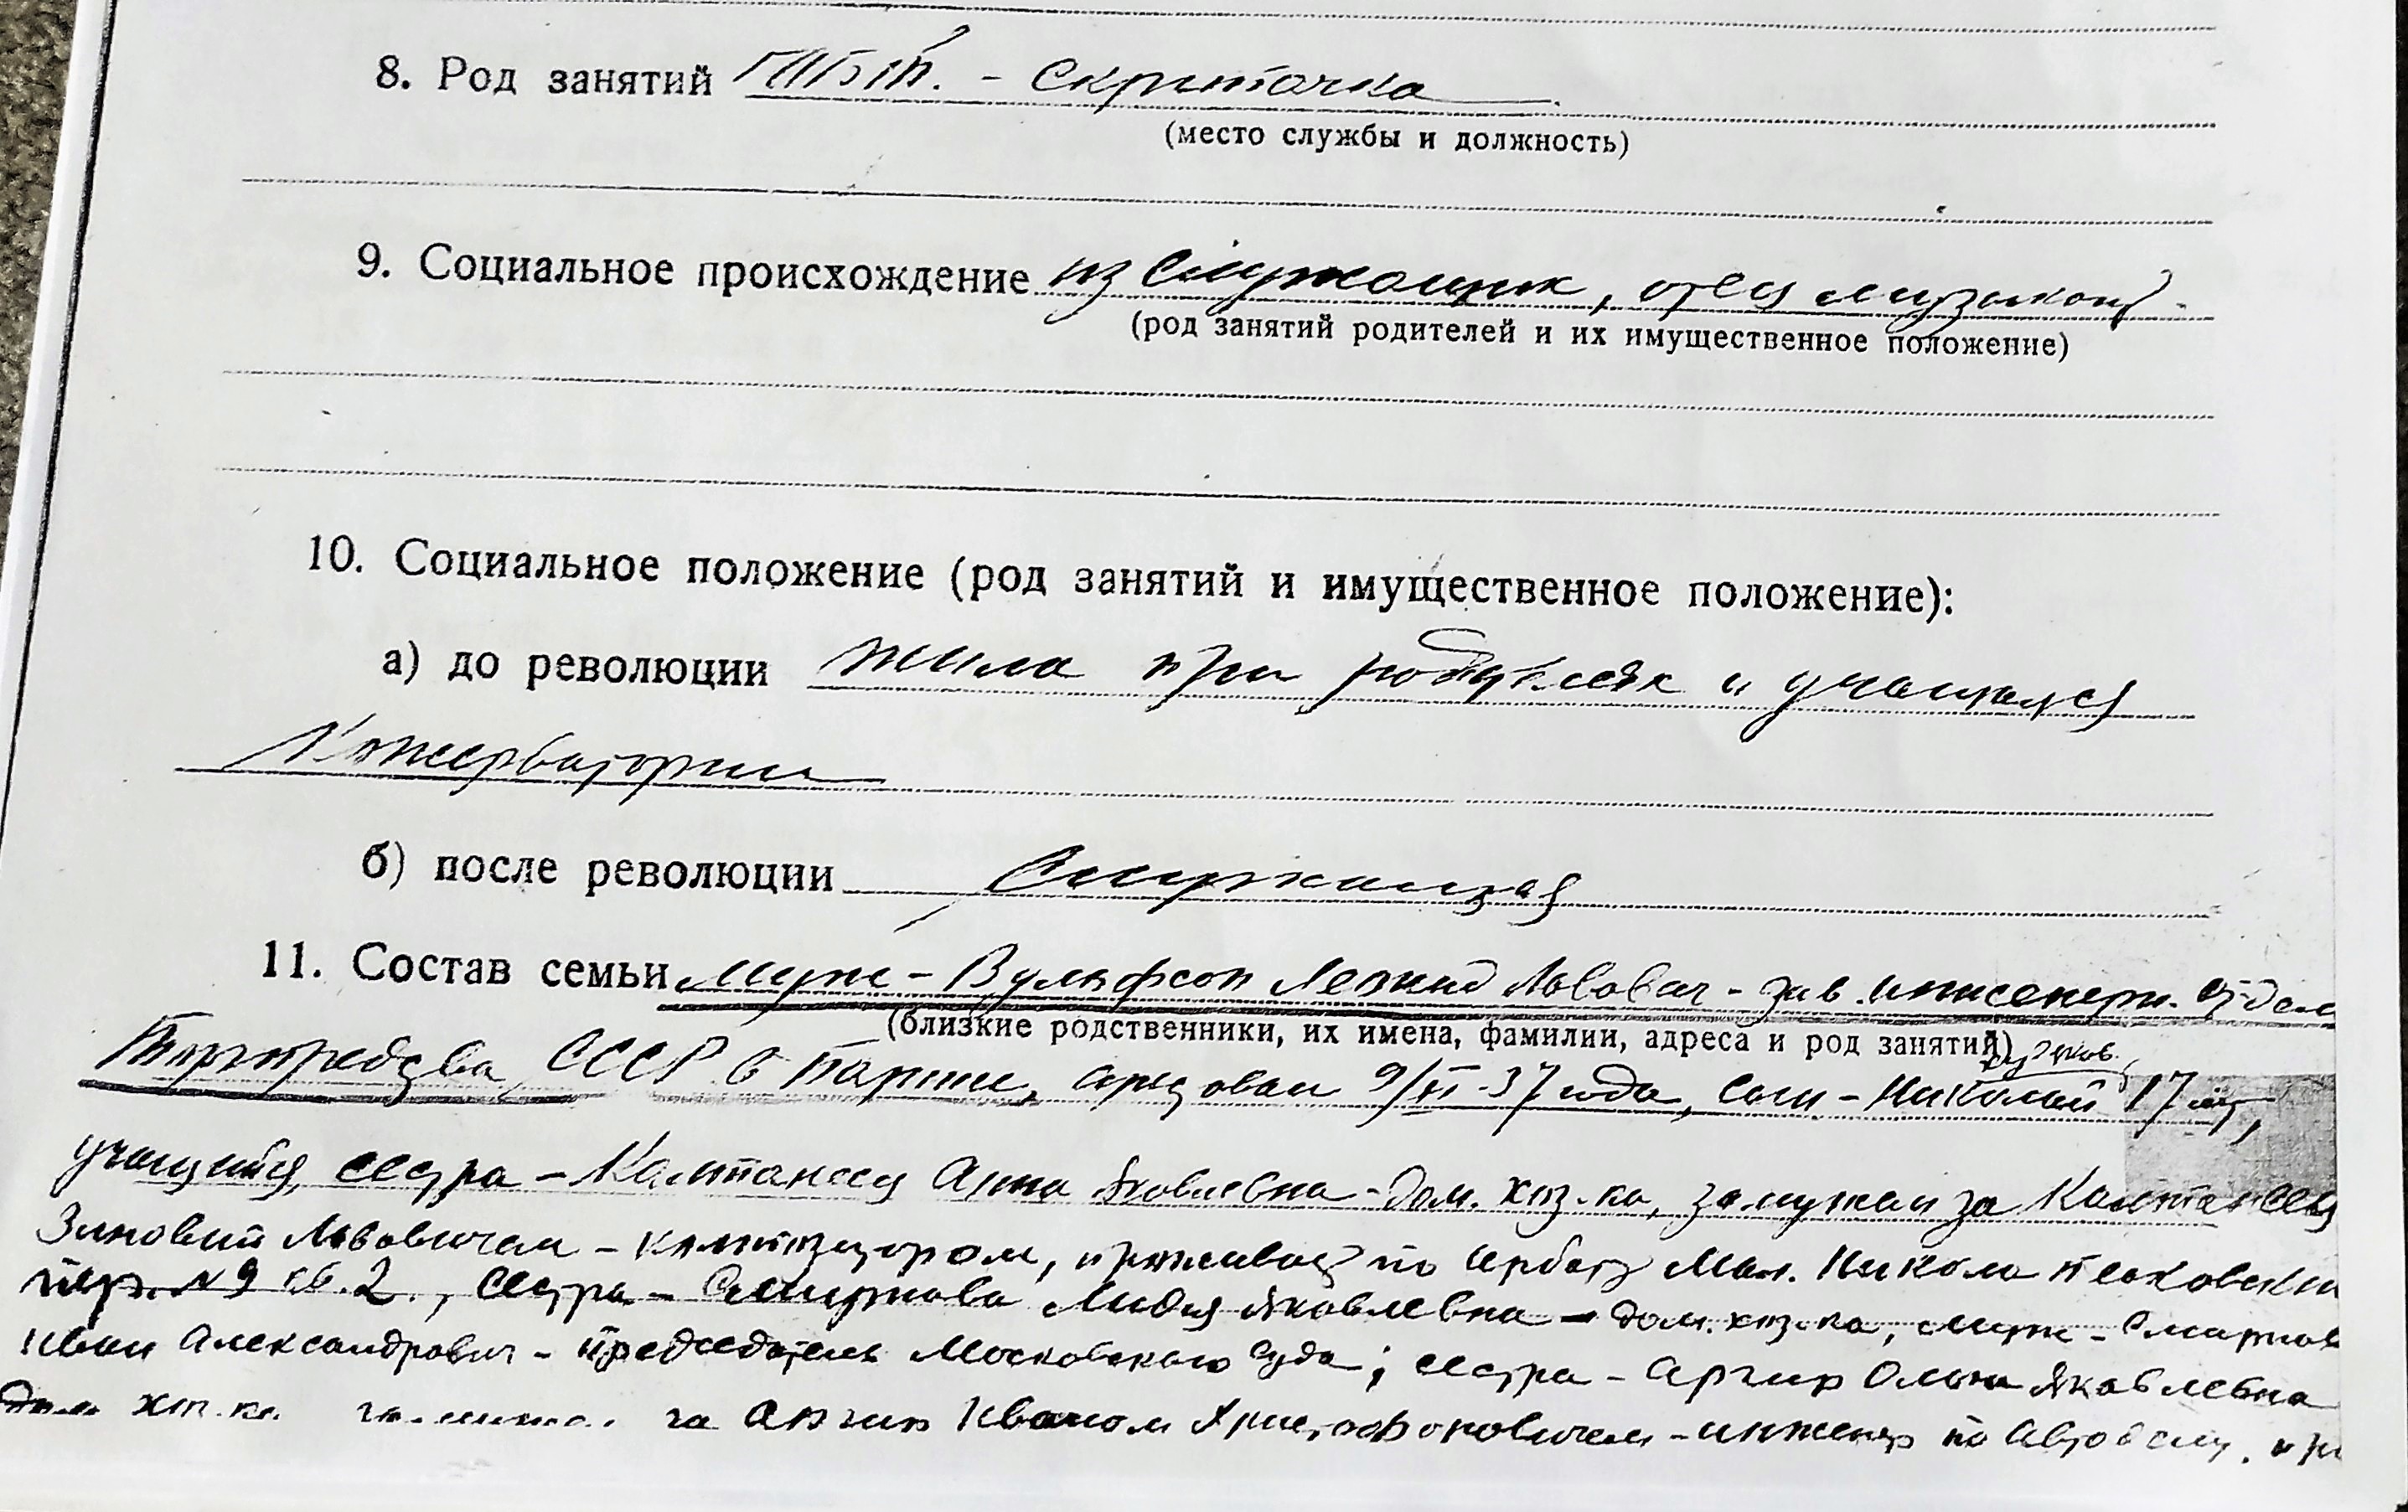 8. Род занятий ГАБТ. - скрипачка
(место службы и должность)
9. Социальное происхождение из служащих, отец музыкант.
(род занятий родителей и их имущественное положение)
10. Социальное положение (род занятий и имущественное положение):
а) до революции жила при родителях и учащаяся
Консерватории
б) после революции Служащая
11. Состав семьи муж - Вульфсон Леонид Львович - зав. инженерн. отдел
(близкие родственники, их имена, фамилии, адреса и род занятий)
Торгпредства СССР в Париже, арестован 9/XI-37 года, сын - Николай 17 лет,
учащийся, сестра - Компанеец Анна Яковлевна - дом. хоз-ка, замужем за Компанеец
Зиновий Львовичем - композитором, проживает по Арбат Мал. Николо песковски
пер. № 9 кв. 2., сестра - Смирнова Лидия Яковлевна - дом. хоз-ка, муж - Смирнов
Иван Александрович - председатель Московского суда; сестра - Аргир Ольга Яковлевна
дом хоз. ка. замужем за Аргир Иваном Христофоровичем - инженер по